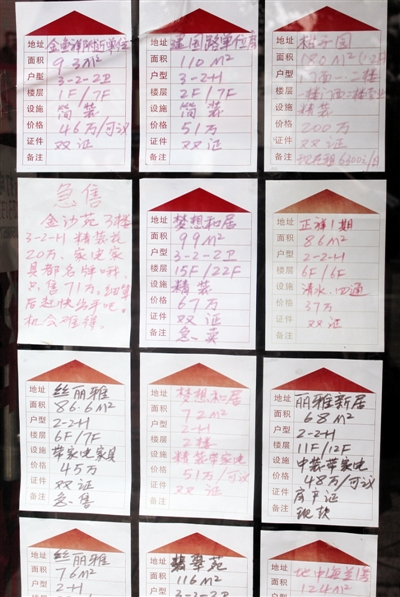 地址 金典祥附近单位
面积 93M²
户型 3-2-2P
楼层 1F/7F
设施 简装
价格 46万/可议
证件 双证
备注
地址 建国路单位房
面积 110M²
户型 3-2-H
楼层 2F/7F
设施 简装
价格 51万
证件 双证
备注
地址 桔子园
面积
户型 门面一二楼
楼层
设施 精装
价格 200万
证件 双证
备注
急售
金沙苑 3楼
3-2-H 精装花
20万、家电家
具都名牌呀、
只售71万,
后赶快出手吧。
机会难得。
地址 梦想和居
面积 99M²
户型 3-2-2P
楼层 15F/22F
设施 精装
价格 67万
证件 双证
备注 急卖
地址 正祥1期
面积 86M²
户型 2-2-H
楼层 6F/6F
设施 清水、四通
价格 37万
证件 双证
备注
地址 丝丽雅
面积 86.6M²
户型 2-2-H
楼层 6F/7F
设施 带家电家具
价格 45万
证件 双证
备注 急售
地址 梦想和居
面积 72M²
户型 2-H
楼层 2楼
设施 精装带家电
价格 51万/可议
证件 双证
备注
地址 丽雅新居
面积 68M²
户型 2-2-H
楼层 11F/12F
设施 中装带家电
价格 48万/可议
证件 房产证
备注 现款
地址 丝丽雅
面积 76M²
户型 2-H
地址 翡翠苑
面积 116M²
户型 3-2-2P
地址 地中海蓝湾
面积 124M²